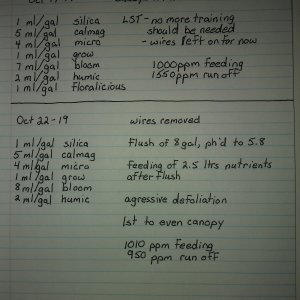 1 ml/gal silica LST - no more training
5 ml/gal calmag should be needed
4 ml/gal micro - wires left on for now
1 ml/gal grow
7 ml/gal bloom 1000ppm feeding
2 ml/gal humic 1550ppm run off
1 ml/gal floralicious
Oct 22-19 wires removed
1 ml/gal silica flush of 8gal, ph'd to 5.8
5 ml/gal calmag
4 ml/gal micro feeding of 2.5 ltrs nutrients
1 ml/gal grow after flush
8 ml/gal bloom
2 ml/gal humic agressive defoliation
lst to even canopy
1010 ppm feeding
950 ppm run off